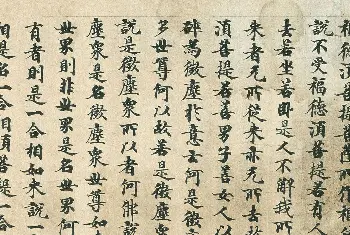 福德須菩提菩薩所作福
說不受福德須菩提若有人
去若坐若卧是人不解我所
来者无所從来亦无所去故
須菩提若善男子善女人以
碎為微塵於意云何是微
多世尊何以故若是微塵
說是微塵衆所以者何佛說
塵衆是名微塵衆世尊如
世界則非世界是名世界何
有者則是一合相如来說一
相是名一合相須菩提一合